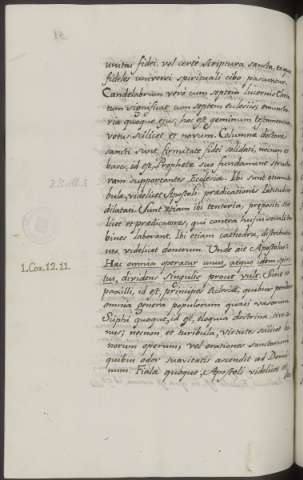 unitas fidei vel certe scriptura sancta, ex qua
fideles universi spirituali cibo pascuntur.
Candelabrum vero cum septem lucernis Chris-
tum significat cum septem eclesiis,
quoque ejus, hoc est geminum testamentum
vetus scilicet et novum. Columnæ
sancti sunt firmitate fidei solidati, necnon et
bases, id est, Prophetæ sua fundamenta
supportantes Ecclesiæ. Ibi sunt
videlicet Apostoli prædicationis latitudine
dilatati. Sunt etiam ibi tentoria,
et prædicatores, qui contra hujus sæculi
laborant. Ibi etiam cathedra,
videlicet donorum. Unde ait Apostolus:
1. Cor. 12. 11.
Hæc omnia operatur unus, atque idem spiri-
tus, dividens singulis prout vult. Sunt et
paxilli, id est, principes Ecclesiæ, quibus pendent
omnia genera populorum quasi vasorum
Sciphi quoque, id est, eloquia doctrinæ,
necnon, et turibula, virtutes scilicet bo-
norum operum, vel orationes sanctorum
quibus odor suavitatis ascendit ad Domi-
num. Fiala quoque, Apostoli videlicet